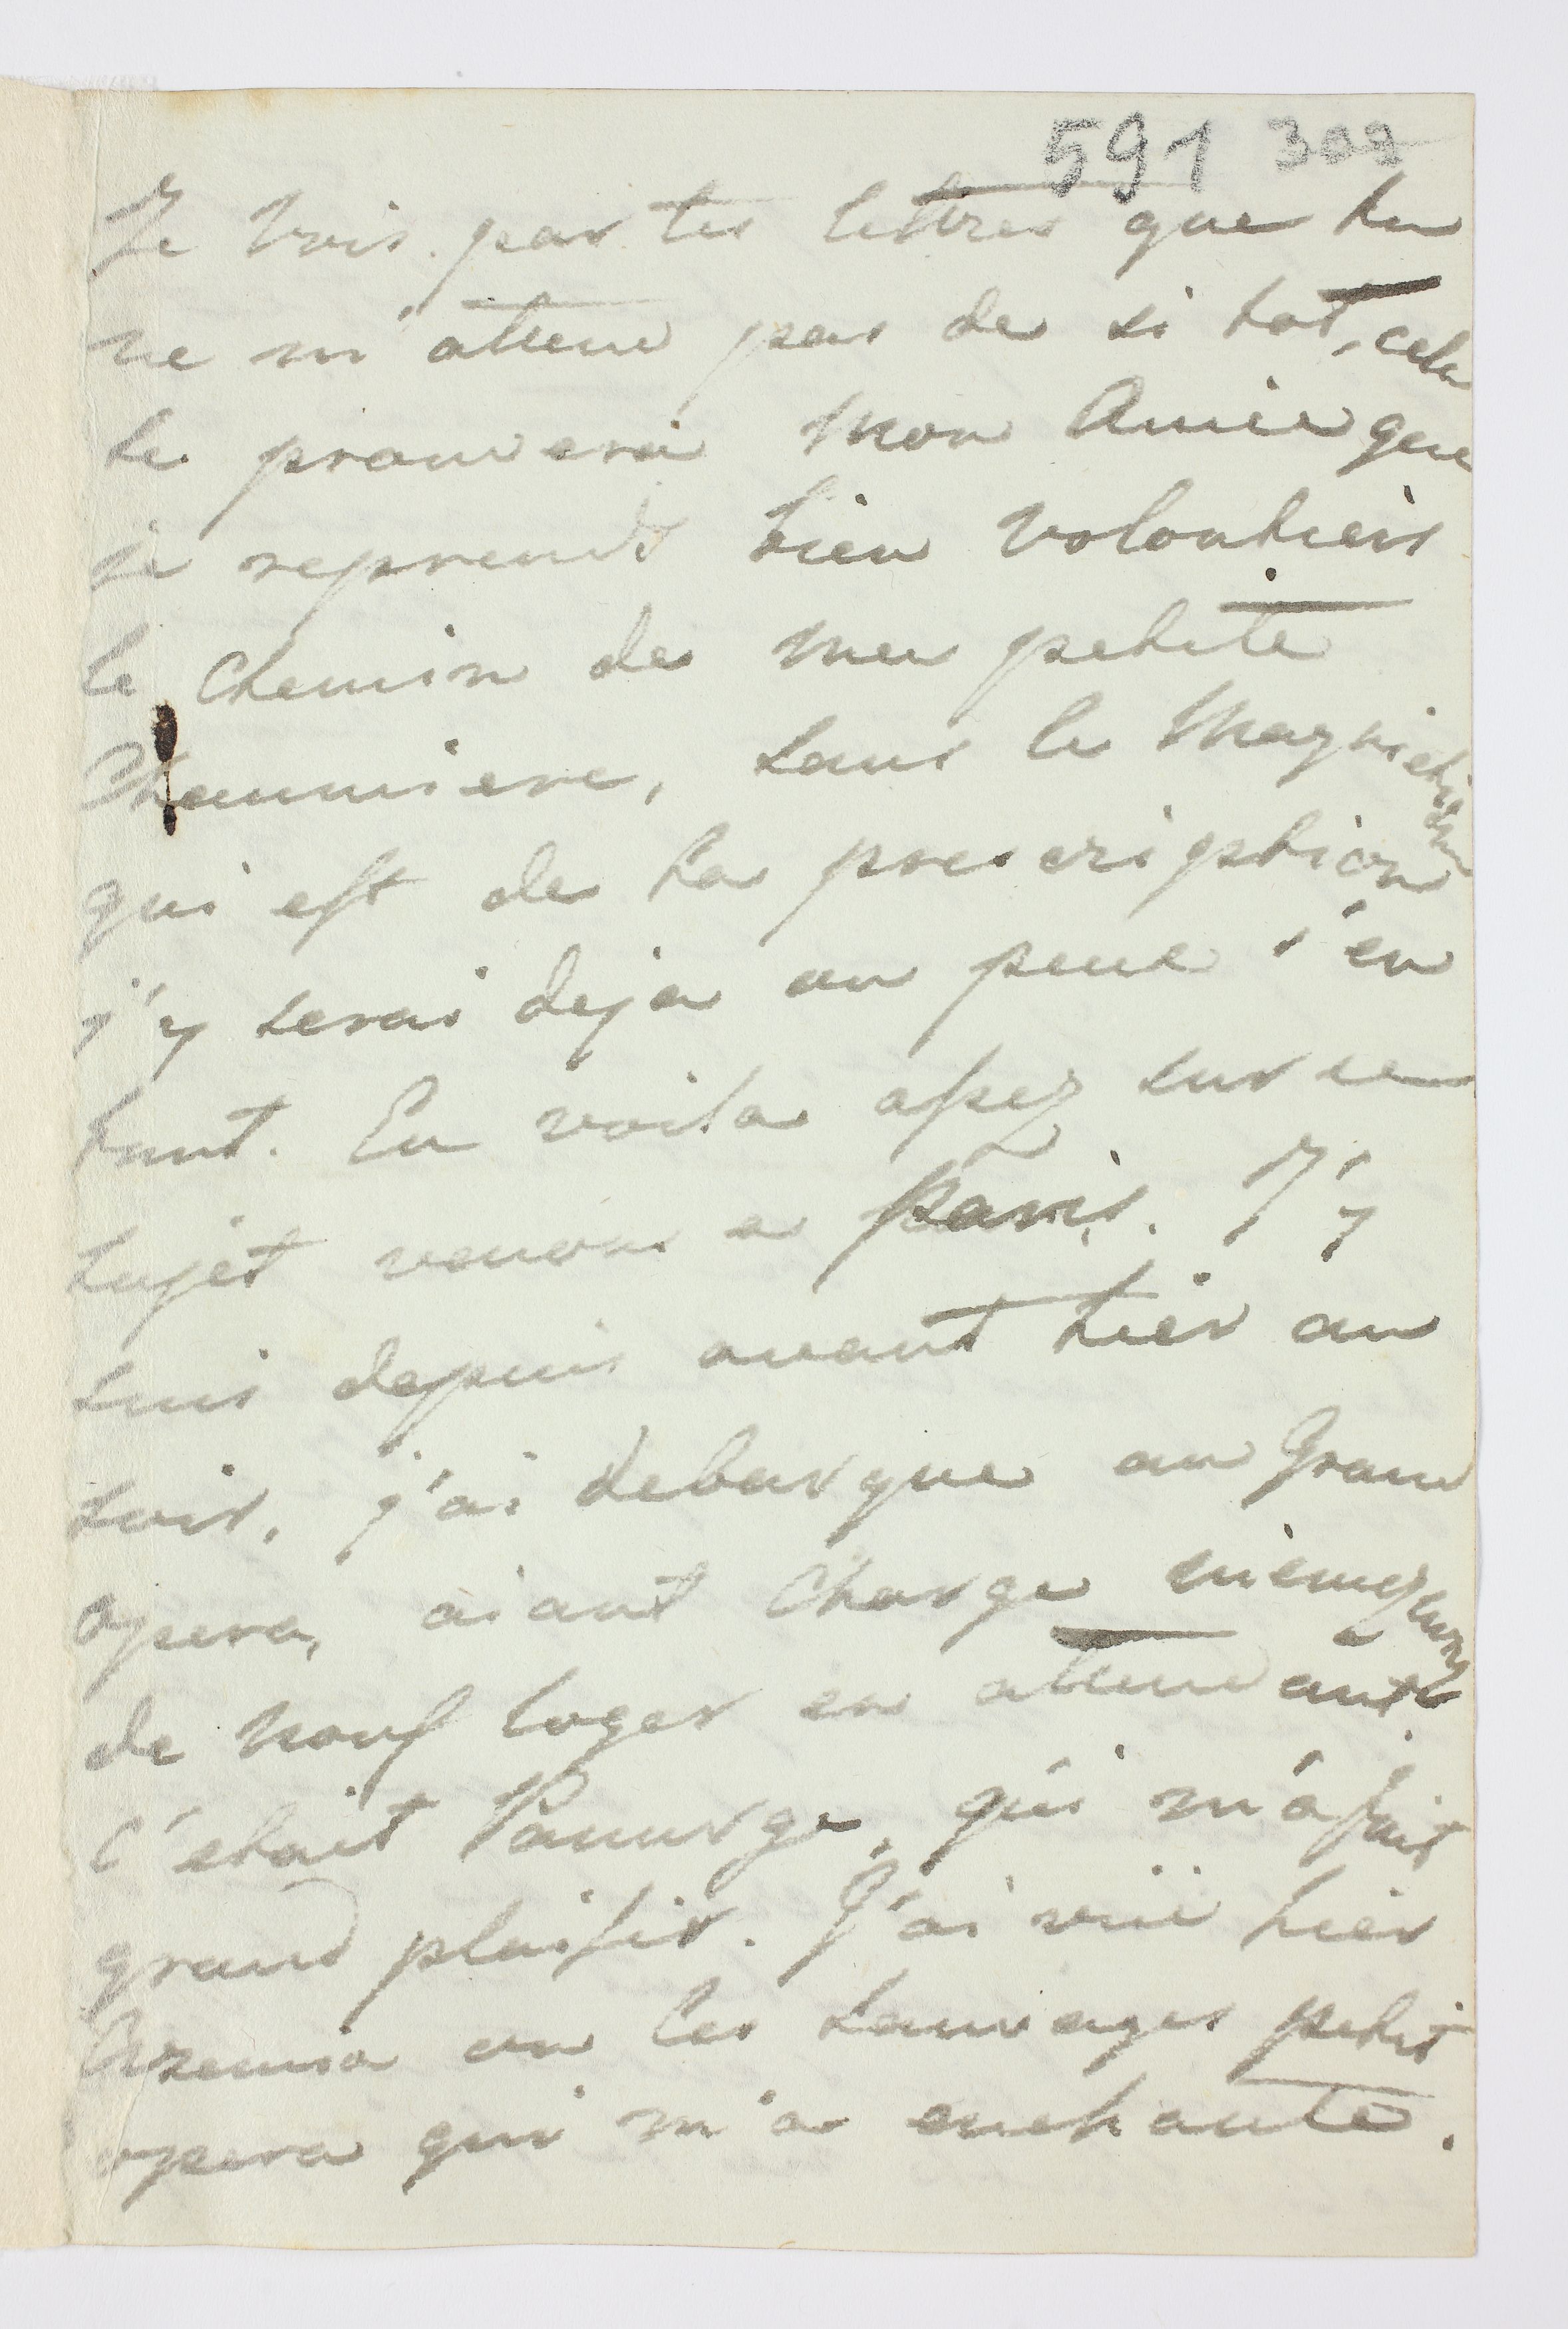 591 309
Je vois par tes lettres que tu
ne m'attend pas de si tot, cela
te prouvera mon Amie que
je reprends bien volontiers
le Chemin de ma petite
Chaumiere, sans le Magnietisme
qui est de ta prescription
j'y serai deja on peut s'en
faut. En voila assez sur ce
sujet venons a Paris. J'y
suis depuis avant hier au
soir, j'ai debarque au Grand
opera, aiant Charge
de nous loger en attendant
c'etait Panurge, qui m'a fait
grand plaisir. J'ai vuë hier
Azemia ou les Sauvages petit
opera qui m'a enchante.